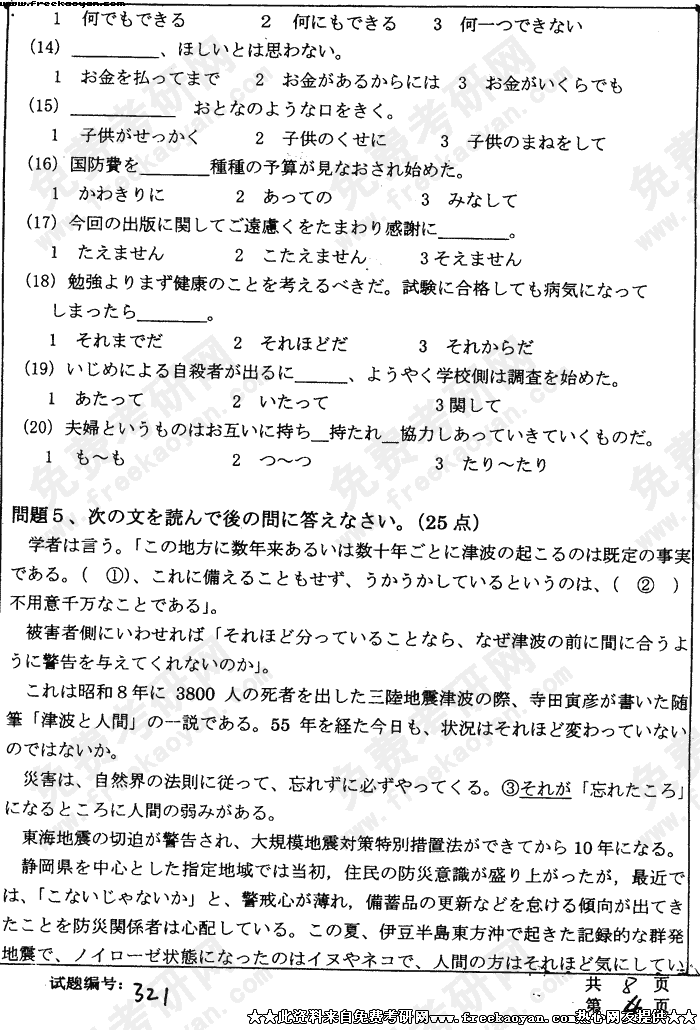 www.freekaoyan.com
1 何でもできる 2 何にもできる 3 何一つできない
(14) ________、ほしいとは思わない。
1 お金を払ってまで 2 お金があるからには 3 お金がいくらでも
(15) ________ おとなのような口をきく。
1 子供がせっかく 2 子供のくせに 3 子供のまねをして
(16) 国防費を______種種の予算が見なおされ始めた。
1 かわきりに 2 あっての 3 みなして
(17) 今回の出版に関してご遠慮くをたまわり感謝に______。
1 たえません 2 こたえません 3そえません
(18) 勉強よりまず健康のことを考えるべきだ。試験に合格しても病気になって
しまったら______。
1 それまでだ 2 それほどだ 3 それからだ
(19) いじめによる自殺者が出るに_____、ようやく学校側は調査を始めた。
1 あたって 2 いたって 3関して
(20) 夫婦というものはお互いに持ち__持たれ__協力しあっていきていくものだ。
1 も〜も 2 つ〜つ 3 たり〜たり
問題5、次の文を読んで後の問に答えなさい。(25点)
学者は言う。「この地方に数年来あるいは数十年ごとに津波の起こるのは既定の事実
である。( ①)、これに備えることもせず、うかうかしているというのは、( ② )
不用意千万なことである」。
被害者側にいわせれば「それほど分っていることなら、なぜ津波の前に間に合うよ
うに警告を与えてくれないのか」。
これは昭和8年に 3800 人の死者を出した三陸地震津波の際、寺田寅彦が書いた随
筆「津波と人間」の一説である。55 年を経た今日も、状況はそれほど変わっていない
のではないか。
災害は、自然界の法則に従って、忘れずに必ずやってくる。③それが「忘れたころ」
になるところに人間の弱みがある。
東海地震の切迫が警告され、大規模地震対策特別措置法ができてから 10 年になる。
静岡県を中心とした指定地域では当初，住民の防災意識が盛り上がったが，最近で
は、「こないじゃないか」と、警戒心が薄れ，備蓄品の更新などを怠ける傾向が出てき
たことを防災関係者は心配している。この夏、伊豆半島東方沖で起きた記録的な群発
地震で、ノイローゼ状態になったのはイヌやネコで、人間の方はそれほど気にしてい
试题编号：321
共 8 页
第 4 页
★★此资料来自免费考研网www.freekaoyan.com热心网友提供★★